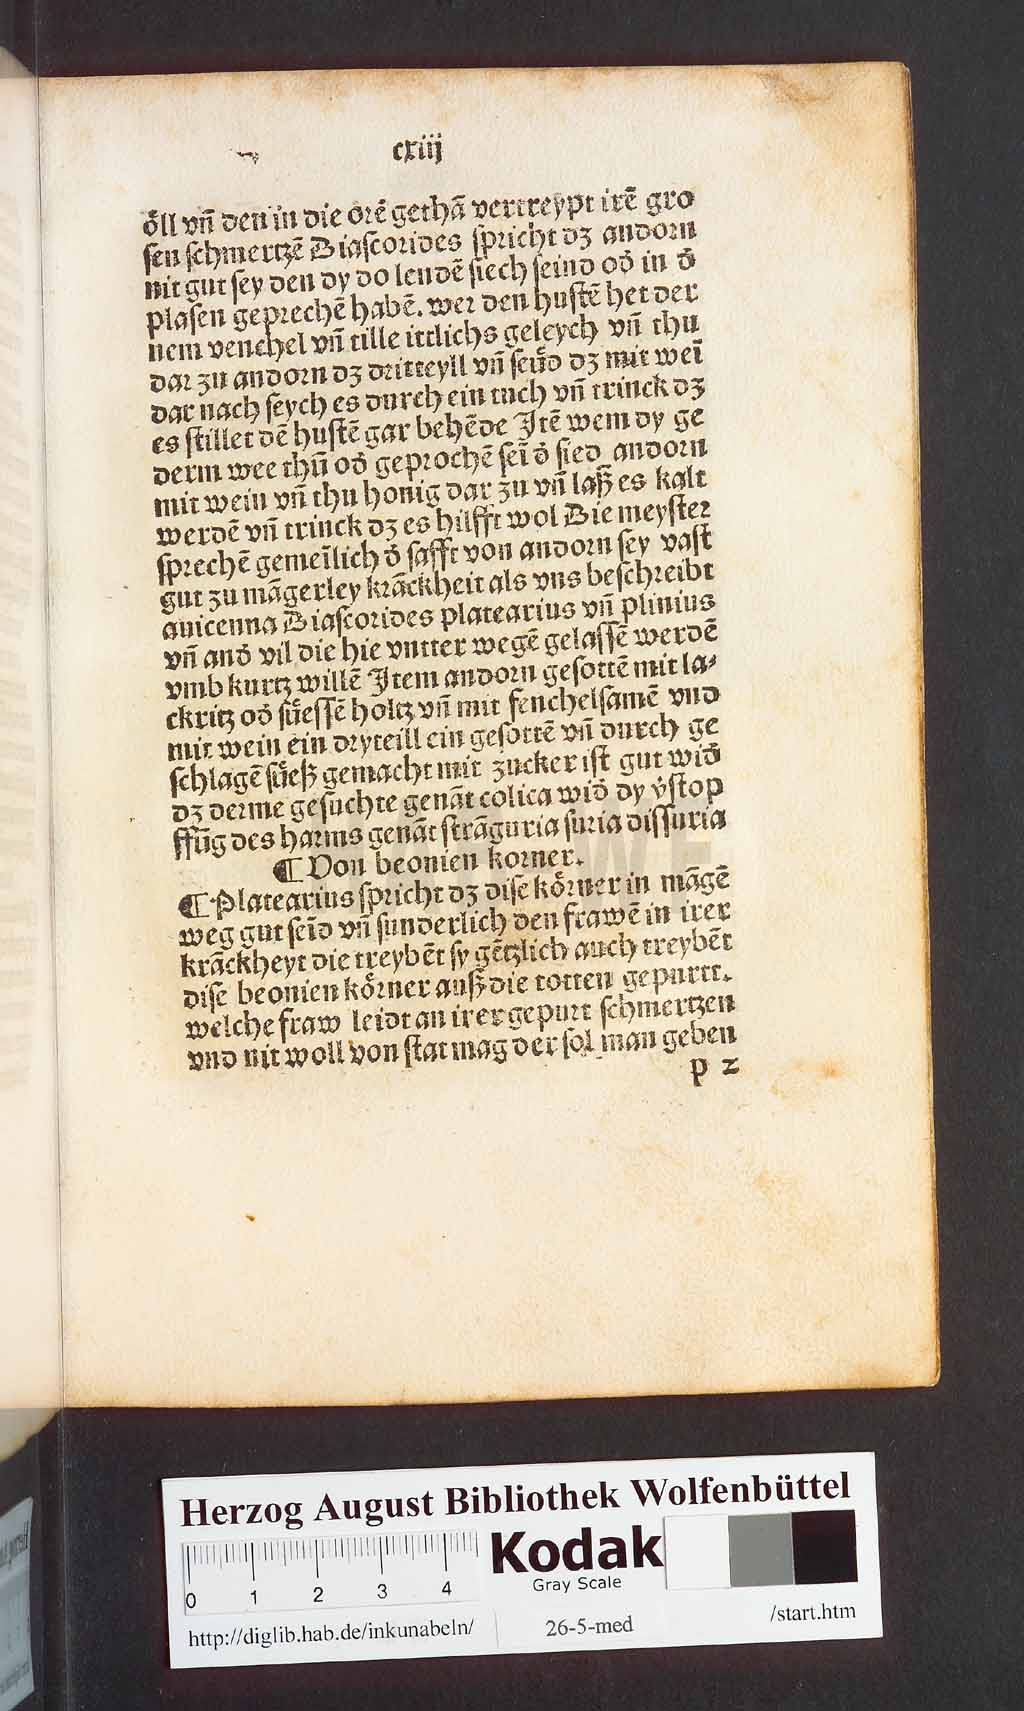 cxiij
öll vñ den in die orẽ gethã vertreypt irẽ gro
sen schmertzẽ Diascorides spricht dz andorn
nit gut sey den dy do lendẽ siech seind od̾ in d̾
plasen geprechẽ habẽ. wer den hustẽ het der
nem venchel vñ tille ittlichs geleych vñ thu
dar zu andorn dz dritteyll vñ seud̄ dz mit wei᷑
dar nach seych es durch ein tuch vñ trinck dz
es stillet dẽ hustẽ gar behẽde Jtẽ wem dy ge
derm wee thũ od̾ geprochẽ sei᷑ d̾ sied andorn
mit wein vñ thu honig dar zu vñ laß es kalt
werdẽ vñ trinck dz es hilfft wol Die meyster
sprechẽ gemei᷑lich d̾ safft von andorn sey vast
gut zu mãgerley krãckheit als vns beschreibt
auicenna Diascorides platearius vñ plinius
vñ and̾ vil die hie vntter wegẽ gelassẽ werdẽ
vmb kurtz willẽ Jtem andorn gesottẽ mit la⸗
ckritz od̾ süessẽ holtz vñ mit fenchelsamẽ vnd
mit wein ein dryteill ein gesottẽ vñ durch ge
schlagẽ süeß gemacht mit zucker ist gut wid̾
dz derme gesuchte genãt colica wid̾ dy v̾stop
ffũg des harms genãt strãguria suria dissuria
¶ Von beonien korner.
¶ Platearius spricht dz dise körner in mãgẽ
weg gut sei᷑d vñ sunderlich den frawẽ in irer
krãckheyt die treybẽt sy gẽtzlich auch treybẽt
dise beonien körner auß die totten gepurtt.
welche fraw leidt an irer gepurt schmertzen
vnd nit woll von stat mag der sol man geben
p 2
Herzog August Bibliothek Wolfenbüttel
0 1 2 3 4
Kodak
Gray Scale
http://diglib.hab.de/inkunabeln/
26-5-med
/start.htm